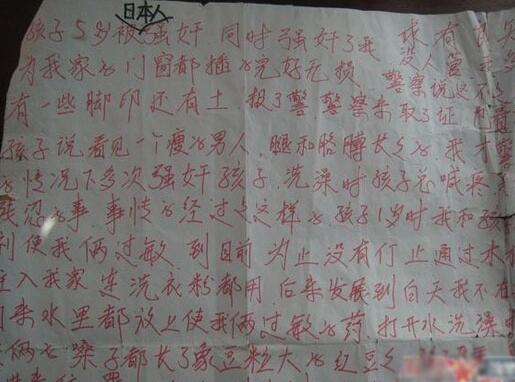 日本人
孩子5岁被强奸 同时强奸了我 或有
为我家的门窗都插的完好无损 没人管
有一些脚印还有土 报了警警察来取了证 警察说
孩子说看见一个瘦的男人 腿和胳膊长长的 我
的情况下多次强奸孩子 洗澡时孩子总喊疼
事 事情的经过是这样的 孩子1岁时我和孩
使我俩过敏 到目前为止没有停止通过水
入我家 连洗衣粉都用 后来发展到白天我不在
来水里都放上使我俩过敏的药 打开水洗澡
俩的嗓子都长了象豆粒大的红豆